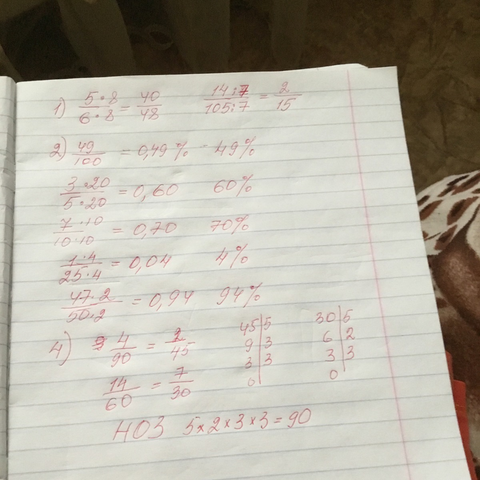 1) 5·8/6·8 = 40/48 14:7/105:7 = 2/15
2) 49/100 = 0,49% 49%
3·20/5·20 = 0,60 60%
7·10/10·10 = 0,70 70%
1·4/25·4 = 0,04 4%
47·2/50·2 = 0,94 94%
4) 4/90 = 2/45 45|5 30|5
9|3 6|2
3|3 3|3
0 0
14/60 = 7/30
НОЗ 5×2×3×3=90